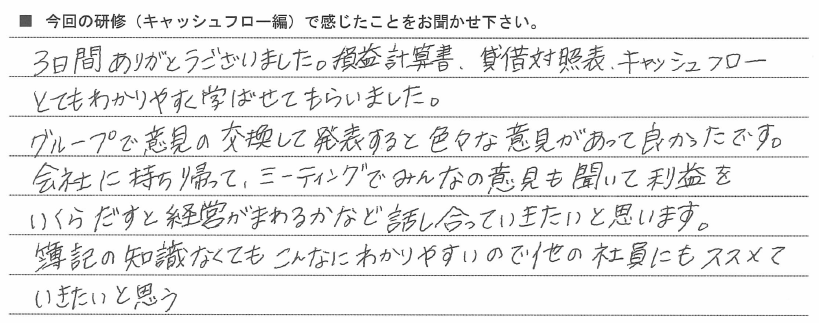 ■ 今回の研修（キャッシュフロー編）で感じたことをお聞かせ下さい。
3日間ありがとうございました。損益計算書、貸借対照表、キャッシュフロー
とてもわかりやすく学ばせてもらいました。
グループで意見の交換して発表すると色々な意見があって良かったです。
会社に持ち帰って、ミーティングでみんなの意見も聞いて利益を
いくらだすと経営がまわるかなど話し合っていきたいと思います。
簿記の知識なくてもこんなにわかりやすいので他の社員にもススメて
いきたいと思う